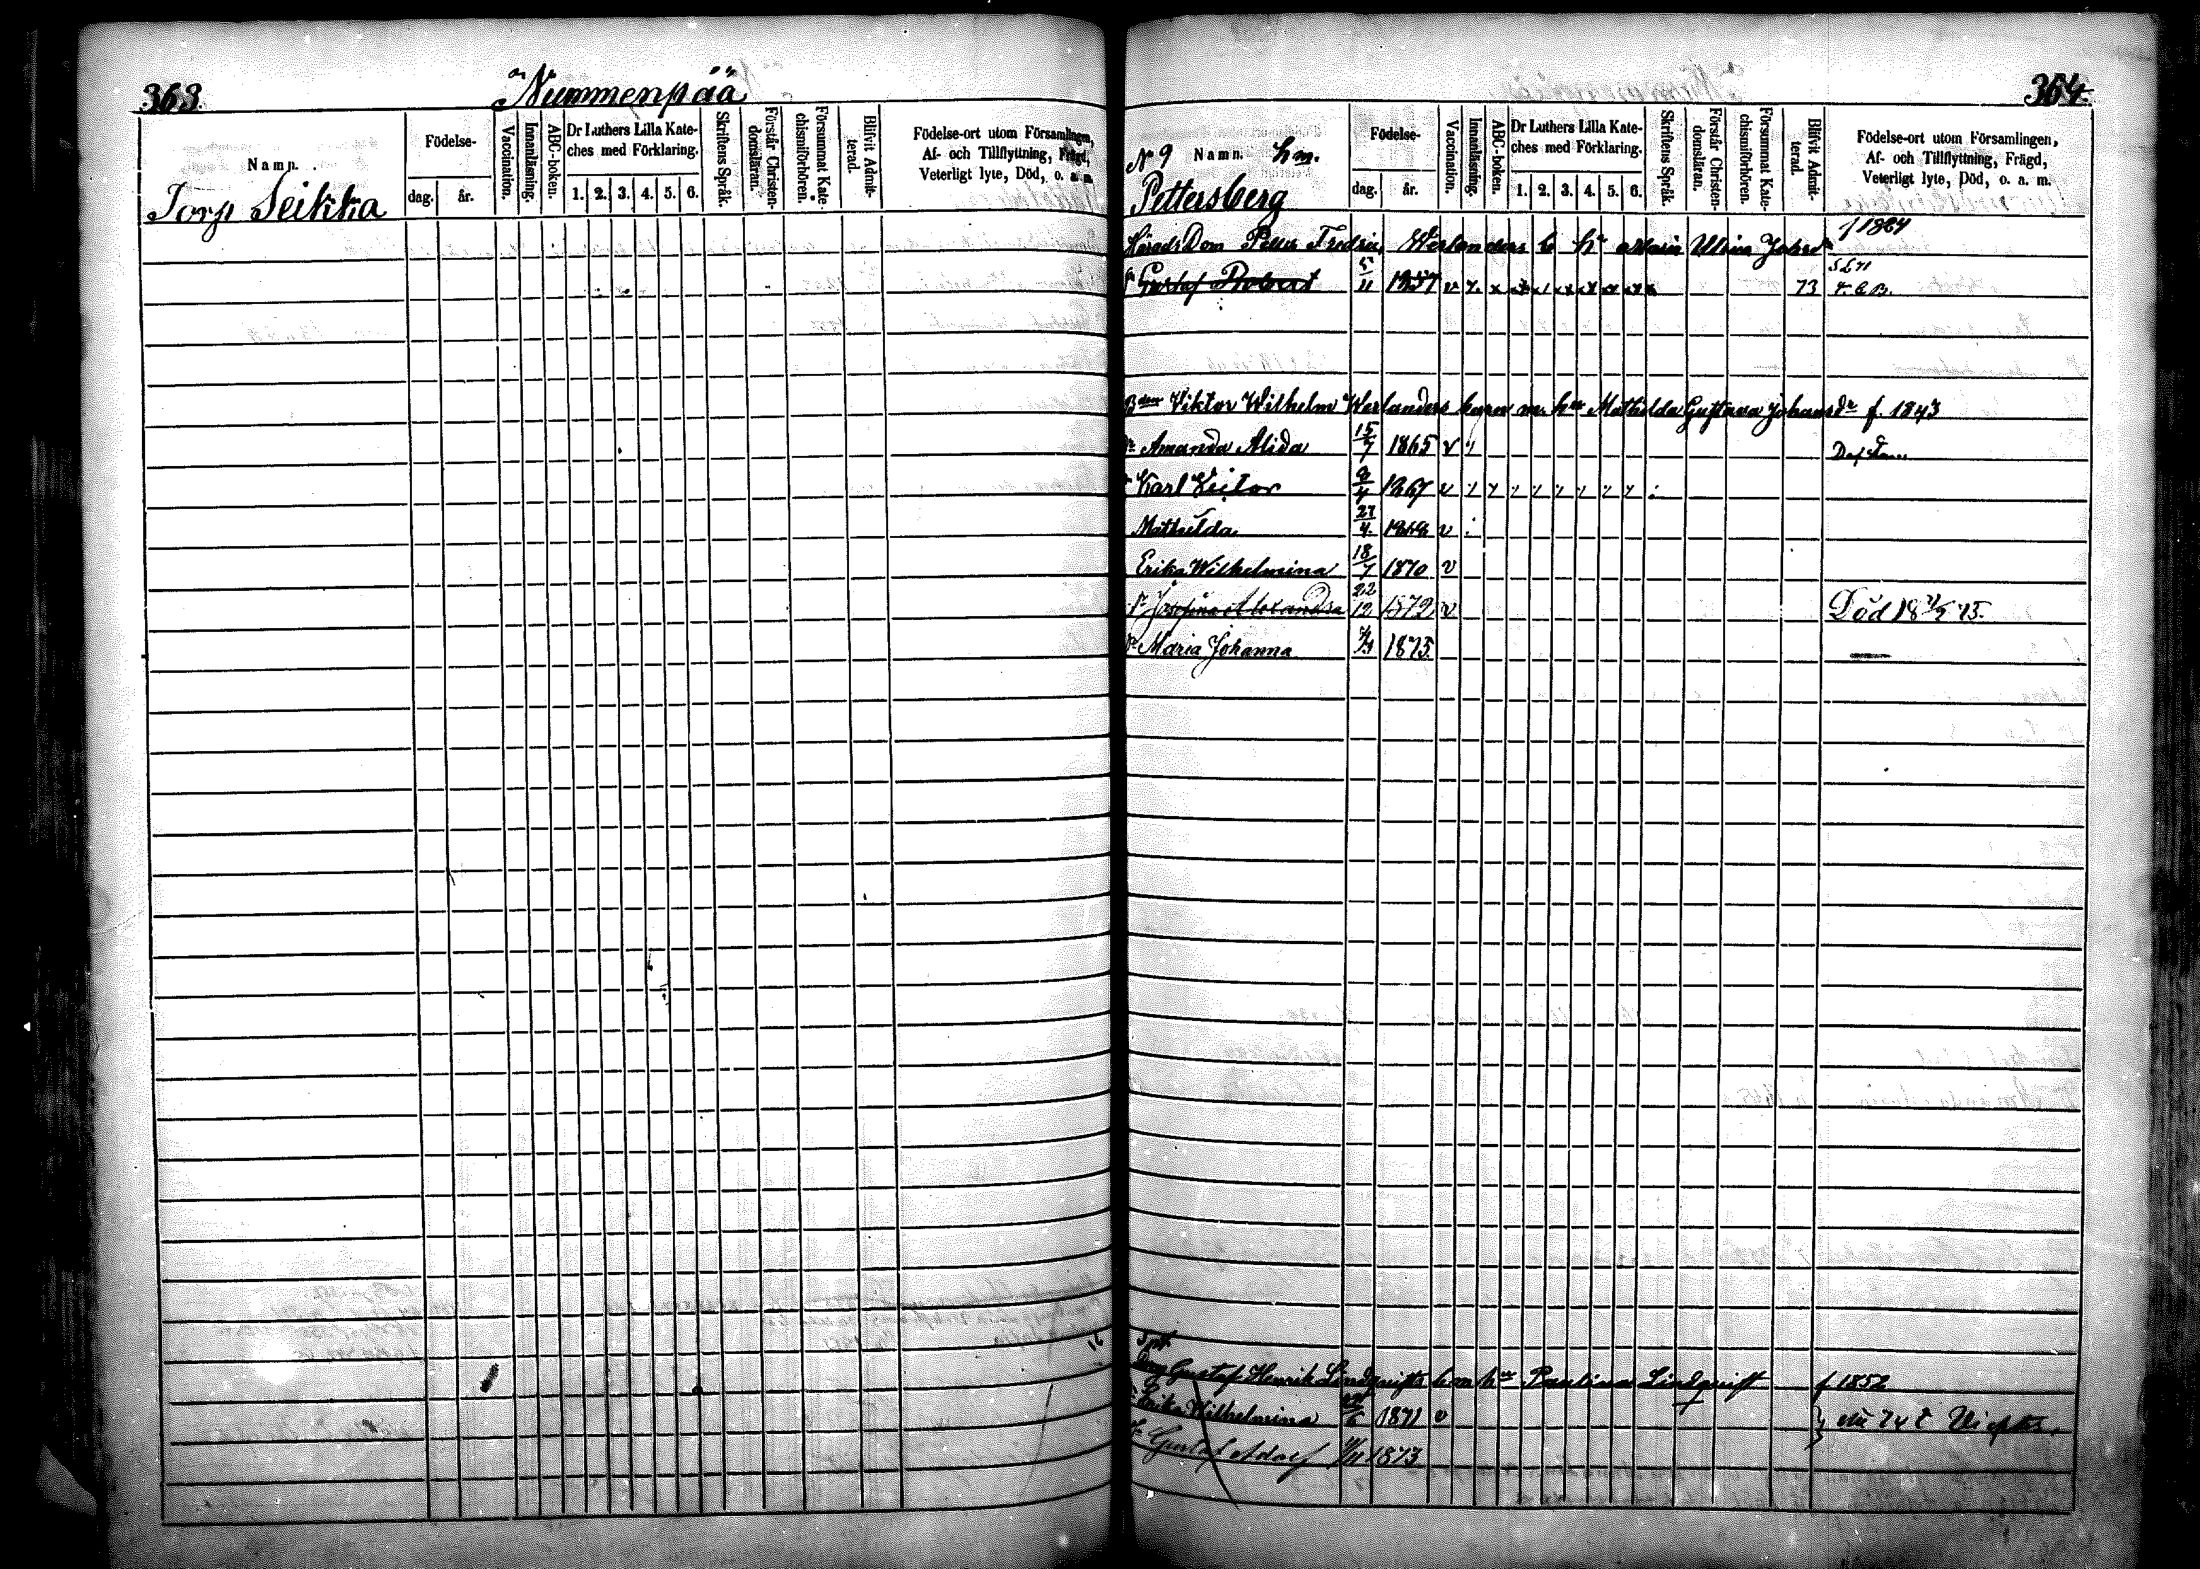 363.
Nummenpää
Namn.
Födelse-
dag.
år.
Vaccination.
Innanläsning.
ABC-boken.
Dr Luthers Lilla Kate-
ches med Förklaring.
1. 2. 3. 4. 5. 6.
Skriftens Språk.
Förstår Christen-
domsläran.
Försummat Kate-
chismiförhören.
Blifvit Admit-
terad.
Födelse-ort utom Församlingen,
Af- och Tillflyttning, Frägd,
Veterligt lyte, Död, o. a. m.
Torp Seikka
364.
N 9 Namn. hm.
Pettersberg
Födelse-
dag.
år.
Vaccination.
Innanläsning.
ABC-boken.
Dr Luthers Lilla Kate-
ches med Förklaring.
1. 2. 3. 4. 5. 6.
Skriftens Språk.
Förstår Christen-
domsläran.
Försummat Kate-
chismiförhören.
Blifvit Admit-
terad.
Födelse-ort utom Församlingen,
Af- och Tillflyttning, Frägd,
Veterligt lyte, Död, o. a. m.
Härads Dom Petter Fredric Werlanders b hu Maria Ulrica f 1824
Gustaf Robert 5/11 1857 v 73
Viktor Wilhelm Werlanders barn m. hu Mathilda Gustava Johansdr f. 1843
Dr Amanda Alida 15/7 1865 v
Karl Victor 1867 v
Mathilda v
Erika Wilhelmina 18/7 1870 v
Dr Josefina Alexandra 22/12 1872 v Död 75.
Dr Maria Johanna 1875
Gustaf Henrik Lindqvists b m hu Paulina Lindqvist f 1852
Erika Wilhelmina 1871 v
Gustaf Adolf 1873